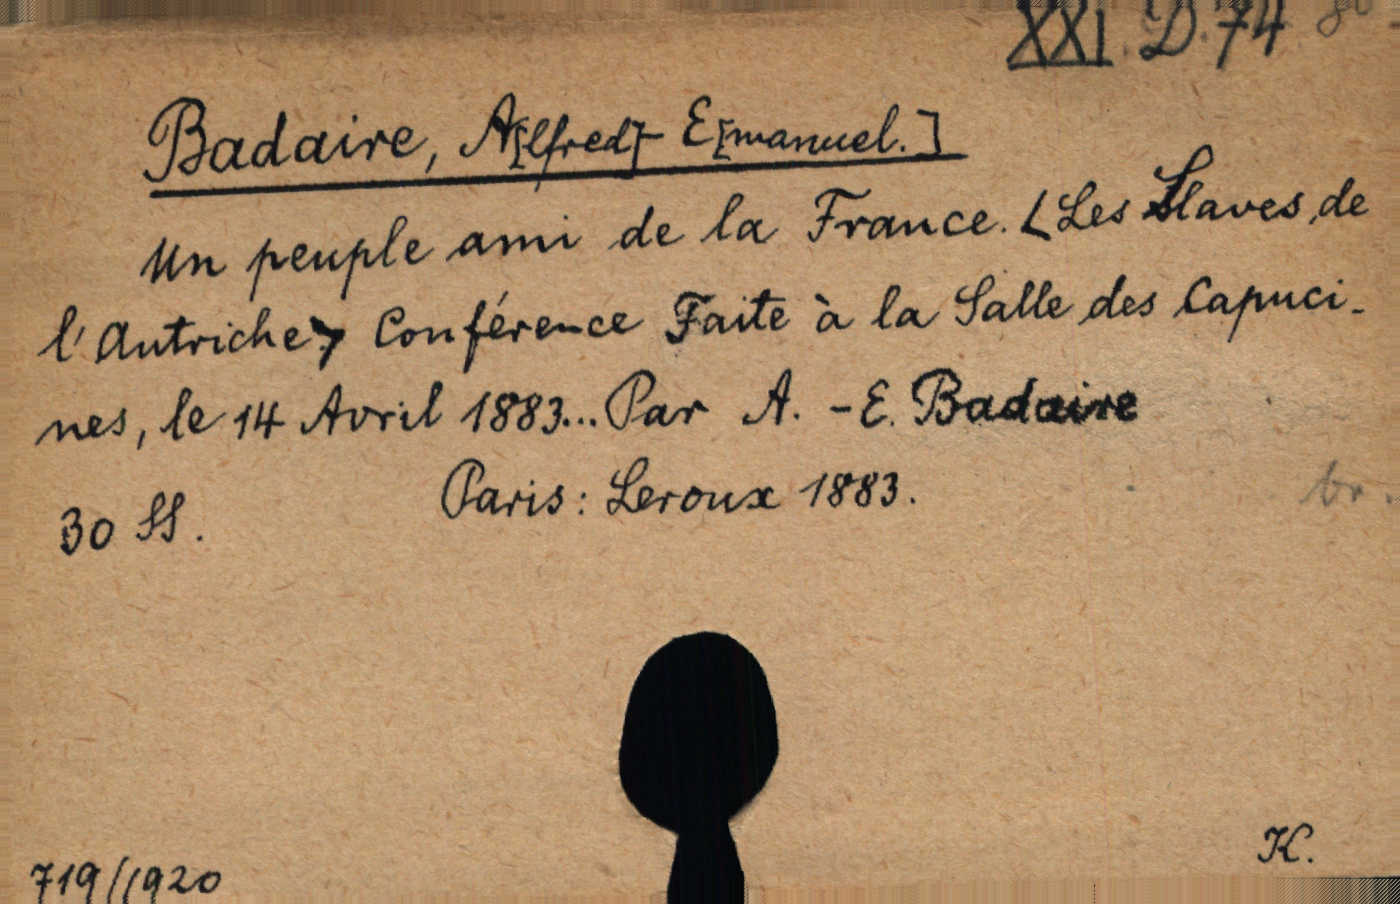 XXI. D. 74 80
Badaire, A[lfred]- E[manuel.]
Un peuple ami de la France. <Les Slaves de
l'Autriche> Conférence Faite à la Salle des Capuci-
nes, le 14 Avril 1883... Par A. -E. Badaire
Paris: Leroux 1883.
br.
30 SS.
K.
719//1920